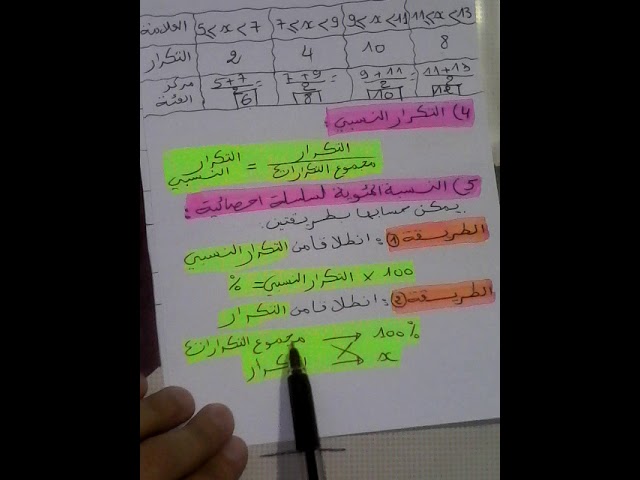 العلامة 5≤x<7 7≤x<9 9≤x<11 11≤x<13
التكرار 2 4 10 8
مركز الفئة 5+7/2=6 7+9/2=8 9+11/2=10 11+13/2=12
4) التكرار النسبي:
التكرار النسبي = التكرار / مجموع التكرارات
5) النسبة المئوية لسلسلة احصائية:
يمكن حسابها بطريقتين:
الطريقة 1: انطلاقا من التكرار النسبي
% = التكرار النسبي × 100
الطريقة 2: انطلاقا من التكرار
مجموع التكرارات → 100%
التكرار → x